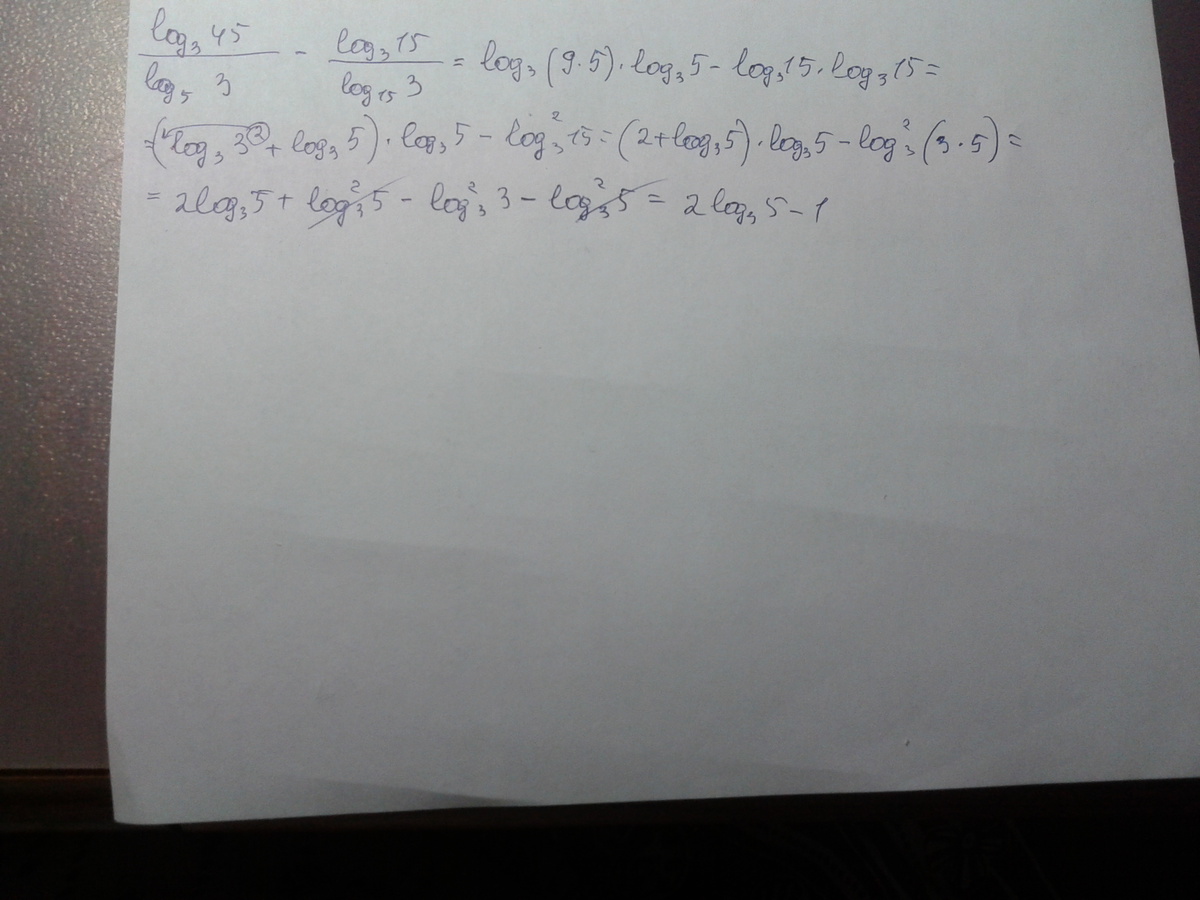 log₃ 45 / log₅ 3 − log₃ 15 / log₁₅ 3 = log₃ (9·5)·log₃ 5 − log₃ 15·log₃ 15 =
= (log₃ 3² + log₃ 5)·log₃ 5 − log₃² 15 = (2 + log₃ 5)·log₃ 5 − log₃² (3·5) =
= 2log₃ 5 + log₃² 5 − log₃² 3 − log₃² 5 = 2 log₃ 5 − 1